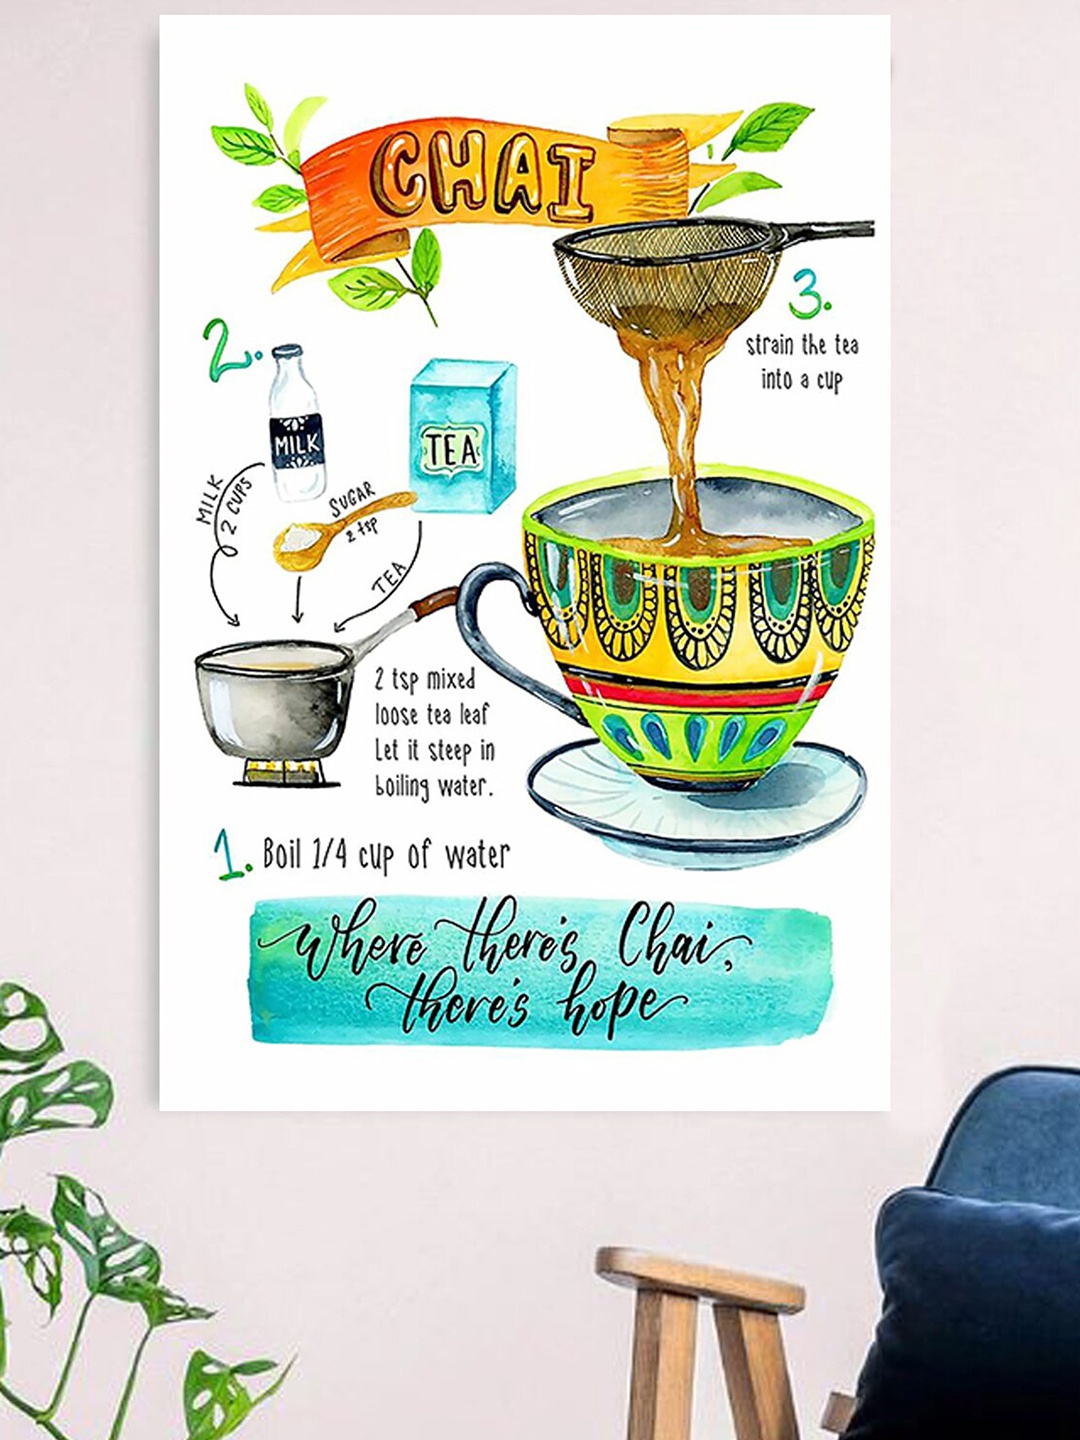 CHAI
3.
strain the tea
into a cup
2.
MILK
TEA
MILK
2 CUPS
SUGAR
2 tsp
TEA
2 tsp mixed
loose tea leaf
Let it steep in
boiling water.
1. Boil 1/4 cup of water
Where there's Chai,
there's hope